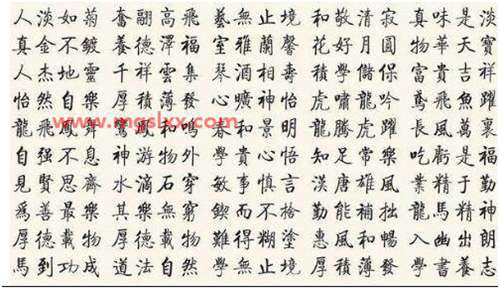 人淡如菊 奮翮高飛 藝無止境 和敬清寂 真味是淡
真金不鍍 養德澤福 室雅蘭馨 花好月圓 物華天寶
人杰地靈 千祥雲集 琴 相壽 積學儲保 富貴吉祥
怡然自樂 厚積薄發 心曠神怡 虎嘯龍吟 鳶飛魚躍
龍飛鳳舞 鸞鳳和鳴 春和景明 龍騰虎躍 長風萬裏
自强不息 神游物外 學貴心悟 知足常樂 吃虧是福
見賢思齊 水滴石穿 敏事慎言 漢唐雄風 業精于勤
爲善最樂 其樂無窮 鍥而不捨 勤能補拙 龍馬精神
厚德載物 厚德載物 難得糊塗 惠風和暢 入幽出朗
馬到功成 道法自然 學無止境 厚積薄發 學書養志
www.mgslxx.com